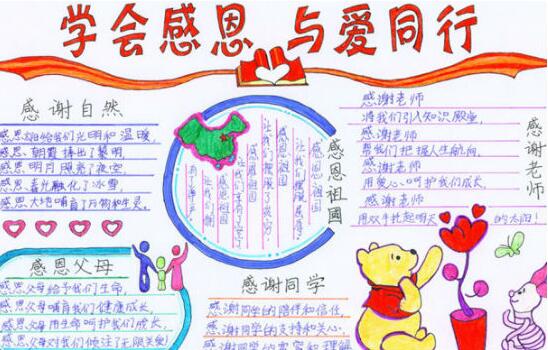 学会感恩 与爱同行
感谢自然
感恩太阳给我们光明和温暖,
感恩朝霞捧出了黎明
感恩明月照亮了夜空
感恩春光融化了冰雪,
感恩大地哺育了万物和生灵,
感恩祖国
感恩祖国
感恩祖国
感恩祖国
感谢老师
感谢老师
将我们引入知识殿堂,
感谢老师
帮我们把握人生航向,
感谢老师
用爱心呵护我们成长,
感谢老师
用双手托起明天 的太阳!
感恩父母
感恩父母给予我们生命,
感恩父母哺育我们健康成长,
感恩父母用生命呵护我们成长,
感恩父母对我们倾注了无限关爱!
感谢同学
感谢同学的陪伴和信任,
感谢同学的支持和关心,
感谢同学的宽容和理解